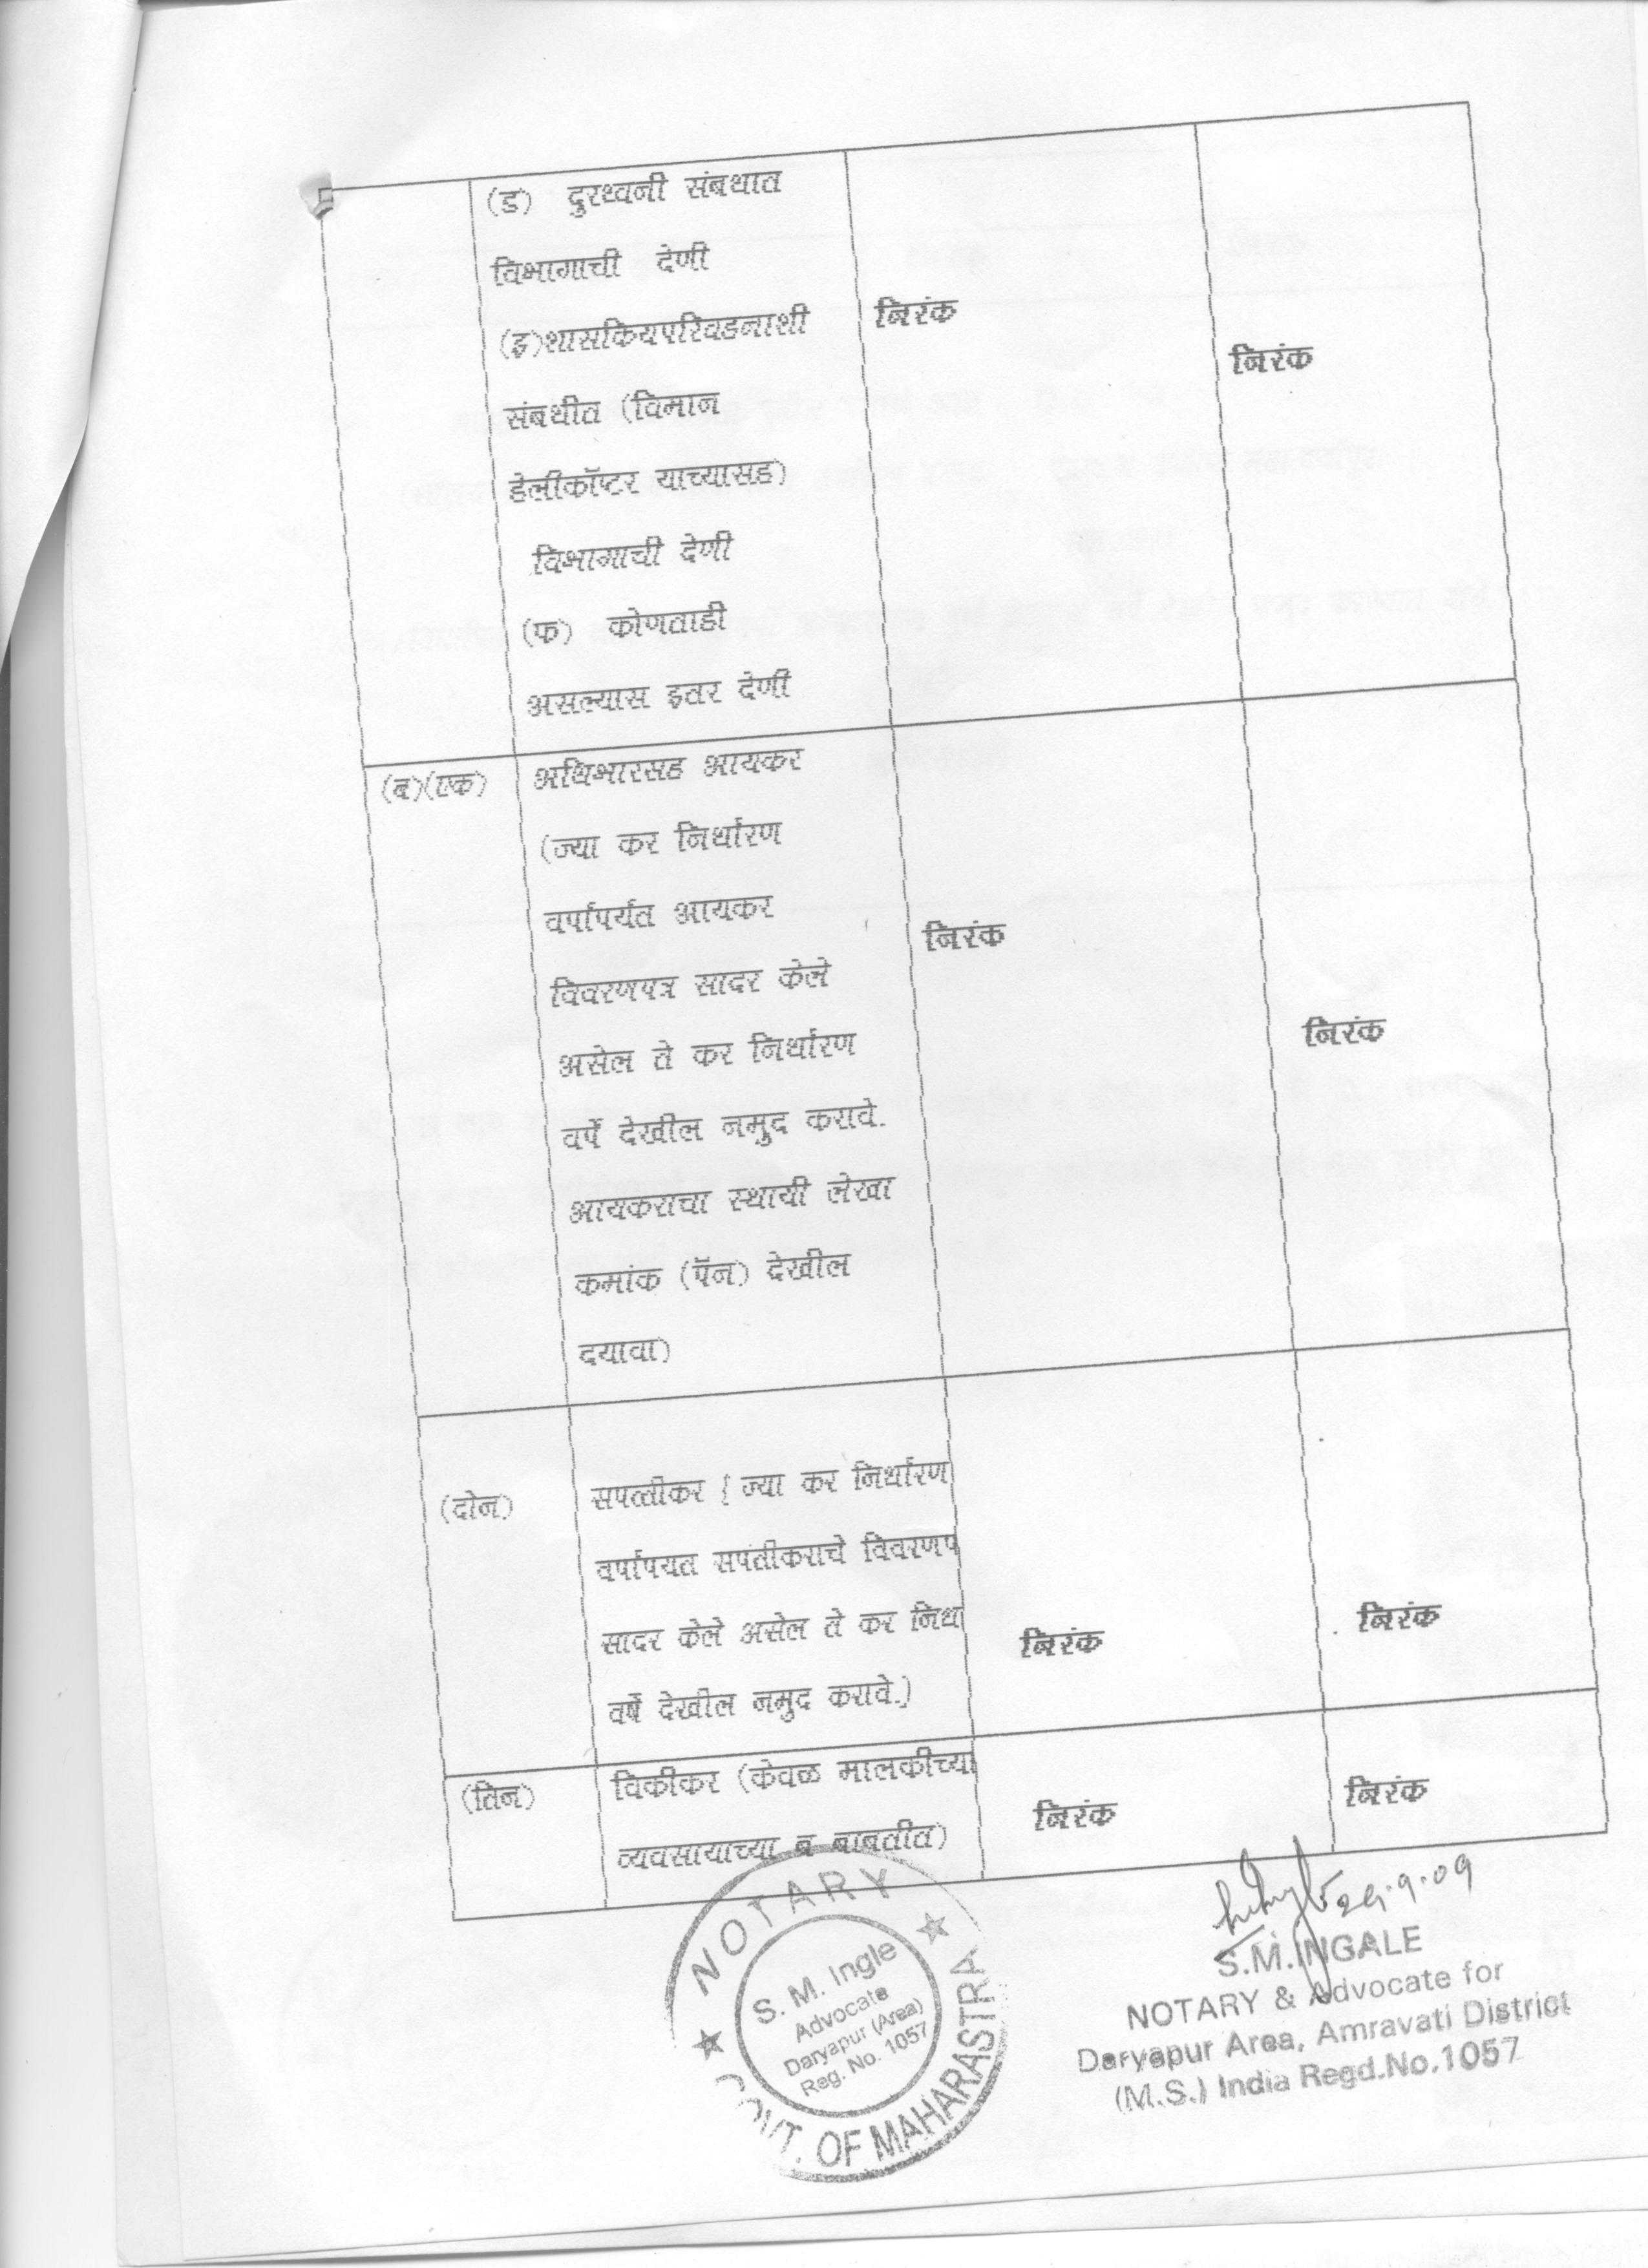 (ड) दुरध्वनी संबधात
विभागाची देणी
(इ)शासकियपरिवहनाशी
निरंक
निरंक
संबधीत (विमान
हेलीकॉप्टर याच्यासह)
विभागाची देणी
(फ) कोणताही
असल्यास इतर देणी
(ब)(एक)
अधिभारसह आयकर
(ज्या कर निर्धारण
वर्षापर्यत आयकर
निरंक
विवरणपत्र सादर केले
असेल ते कर निर्धारण
निरंक
वर्षे देखील नमुद करावे.
आयकराचा स्थायी लेखा
कमांक (पॅन) देखील
दयावा)
(दोन)
सपत्तीकर { ज्या कर निर्धारण
वर्षापयत सपतीकराचे विवरणप
सादर केले असेल ते कर निर्धा
निरंक
निरंक
वर्षे देखील नमुद करावे.)
(तिन)
विकीकर (केवळ मालकीच्या
निरंक
निरंक
व्यवसायाच्या ब बाबतीत)
NOTARY
S. M. Ingle
Advocate
Daryapur (Area)
Reg. No. 1057
GOVT. OF MAHARASTRA
29.9.09
S.M.INGALE
NOTARY & Advocate for
Daryapur Area, Amravati District
(M.S.) India Regd.No.1057